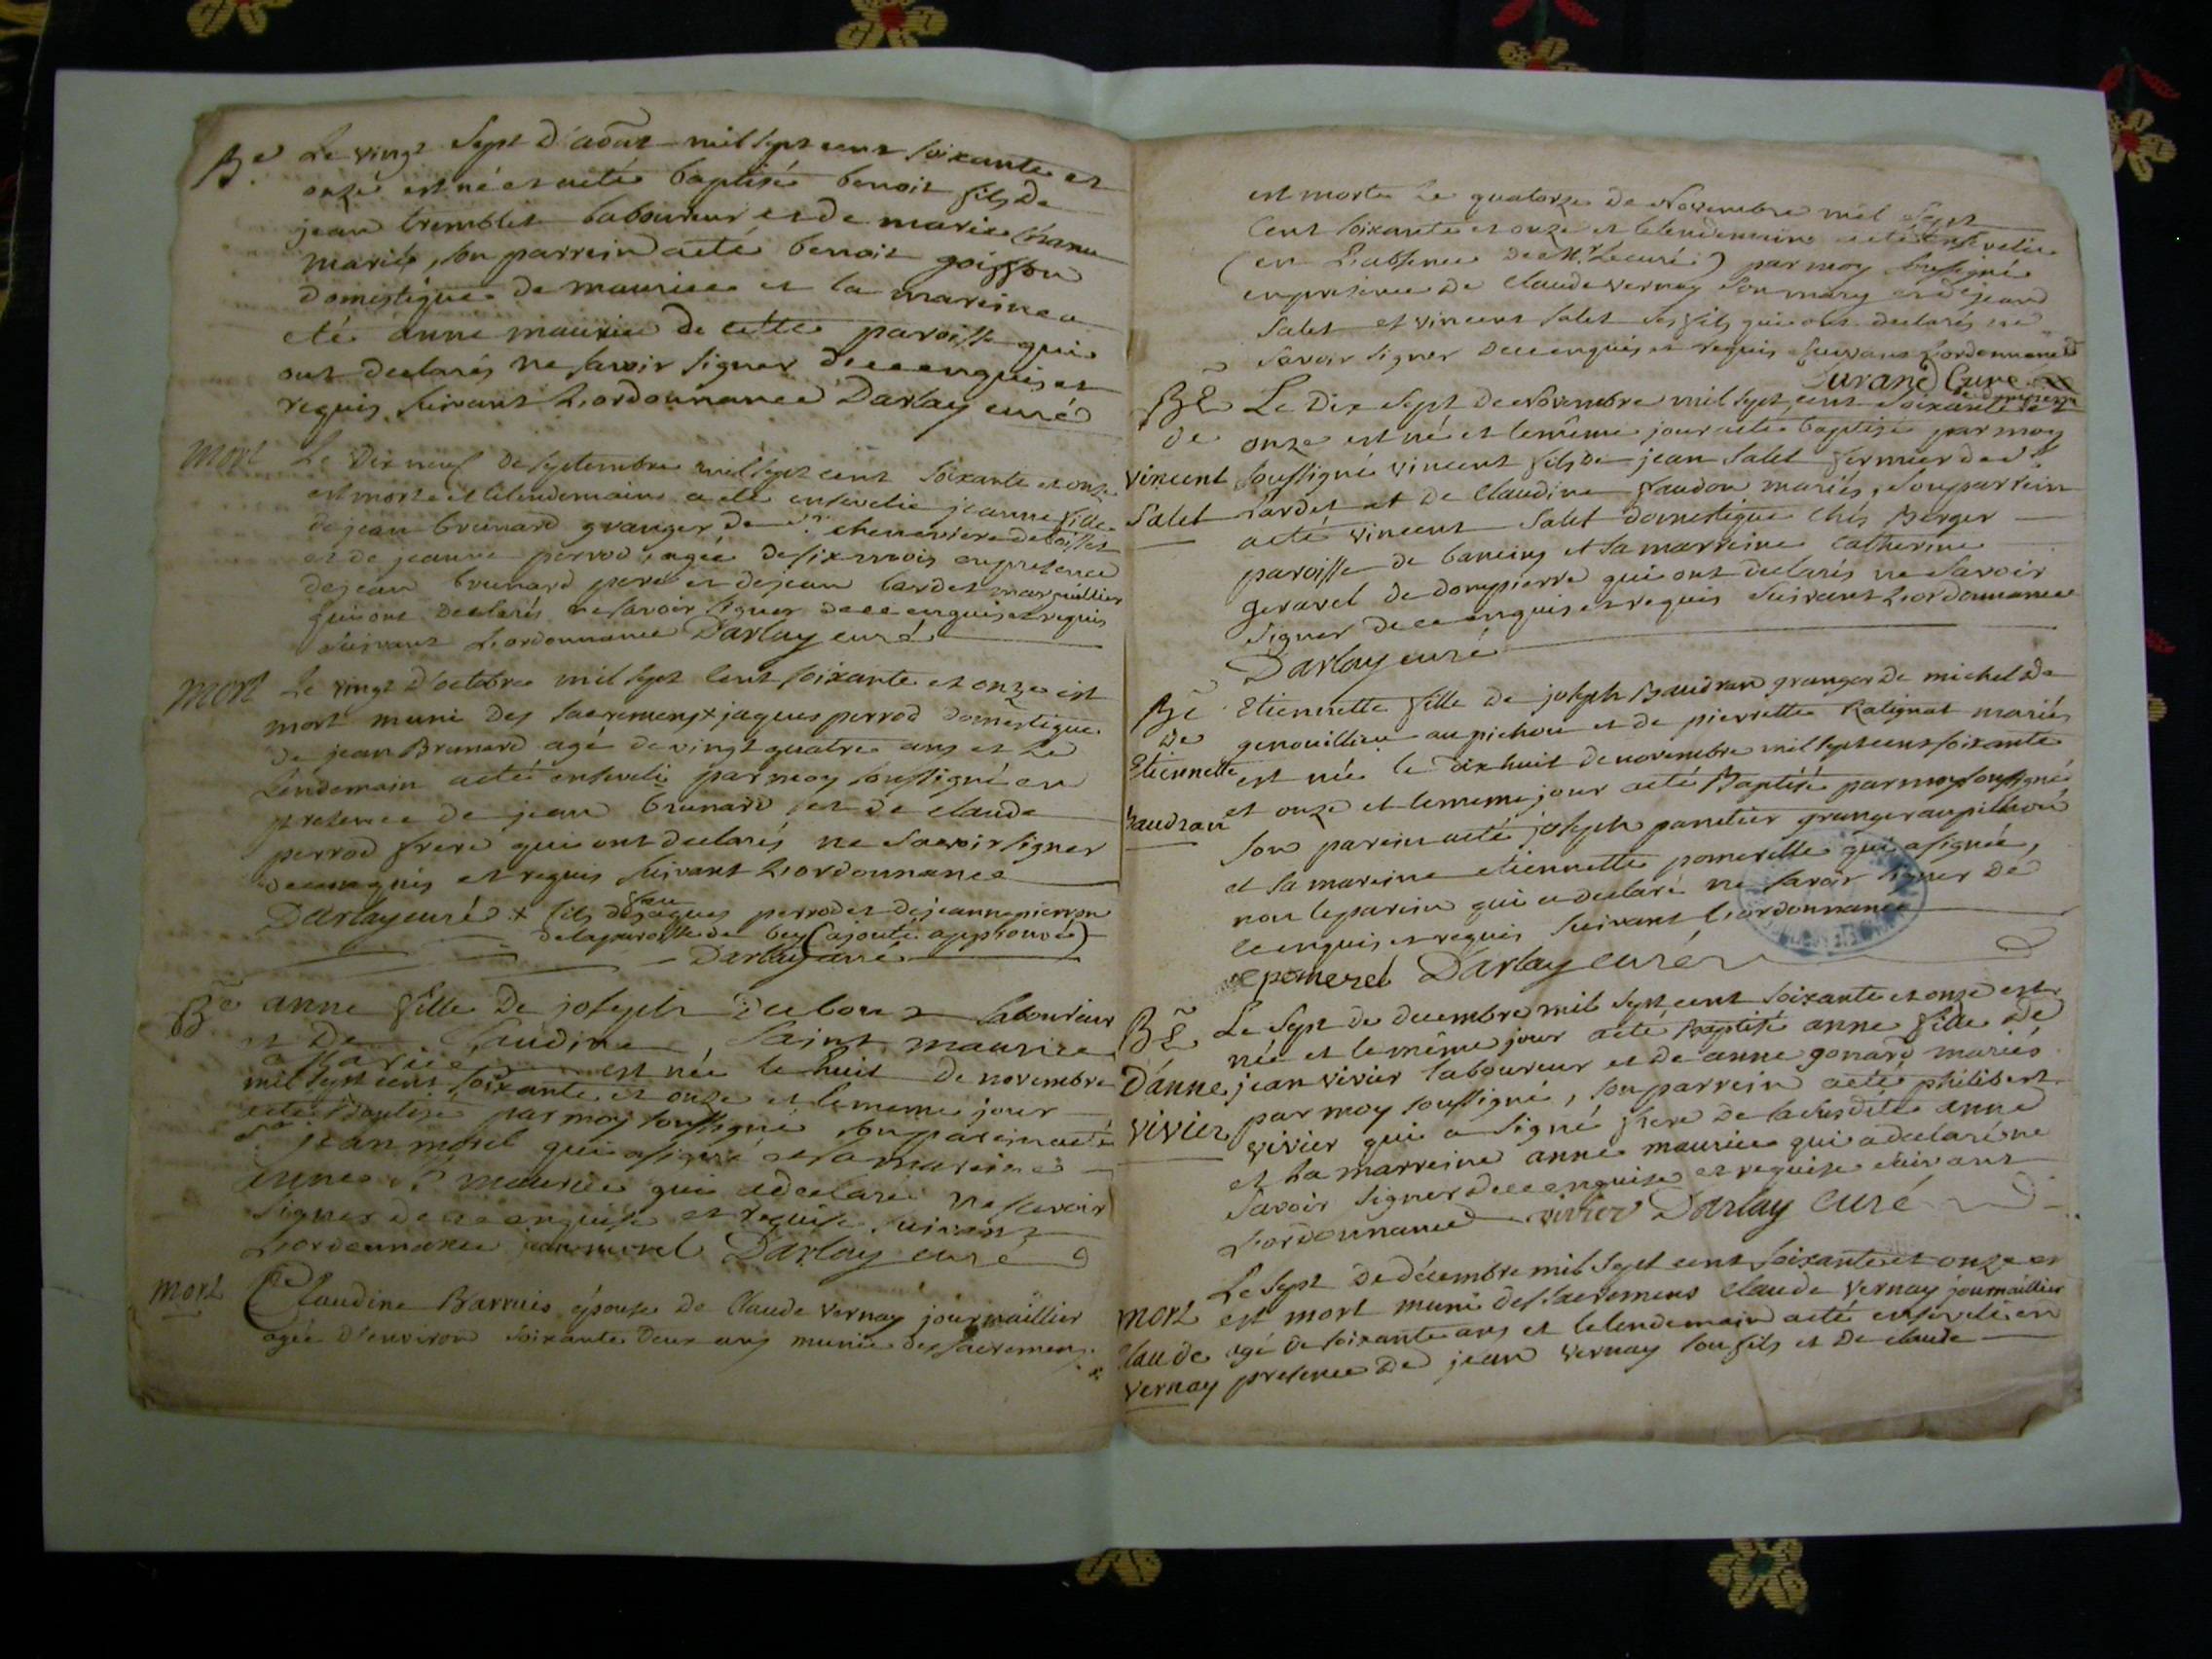 Be Le vingt Sept d'aoust mil sept cent soixante et
onze est né et aeté baptisé benoit fils de
jean tremblet laboureur et de marie chanu
mariés, son parrein aeté benoit
domestique de maurice et la mareine a
eté anne maurice de cette paroisse qui
ont declarés ne savoir signer de ce enquis et
requis suivant L'ordonnance Darlay curé
mort Le Dix neuf de septembre mil sept cent soixante et onze
est morte et le lendemain a eté ensevelie jeanne fille
de jean brunard granger de cheneviere de
et de jeanne perrod, agée de six mois en presence
de jean brunard pere et de jean lardet marguillier
qui ont declarés ne savoir signer de ce enquis et requis
suivant L'ordonnance Darlay curé
mort Le vingt d'octobre mil sept cent soixante et onze est
mort muni des sacremens + jaques perrod domestique
de jean Brunard agé de vingt quatre ans et Le
Lendemain aeté enseveli par moy soussigné en
presence de jean brunard et de claude
perrod frere qui ont declarés ne savoir signer
de ce enquis et requis suivant L'ordonnance
Darlay curé + fils de feu jaques perrod et de jeanne pierron
de la paroisse de bey (ajouté approuvé)
Darlay curé
Be anne fille de joseph Dubou laboureur
et De Claudine Saint maurice
mariés est née le huit de novembre
mil sept cent soixante et onze et le meme jour
aeté Baptisé par moy soussigné son parein aeté
Sr jean morel qui a signé et sa mareine
anne St maurice qui a declaré ne savoir
signer de ce enquise et requise suivant
L'ordonnance morel Darlay curé
mort Claudine Barruis épouse de Claude vernay journaillier
agée d'environ soixante deux ans munie des sacremens
est morte Le quatorze de Novembre mil sept
Cent soixante et onze et le lendemain aeté ensevelie
(en L'absence de Mr. Lecuré) par moy soussigné
en presence de Claude vernay son mary et de jean
Salet et vincent Salet ses fils qui ont declarés ne
savoir signer de ce enquis et requis suivant L'ordonnance
Durand Curé
de dompierre
BE Le Dix Sept de Novembre mil sept cent Soixante et
de onze est né et le même jour aeté baptisé par moy
vincent soussigné vincent fils de jean Salet fermier de Sr
Salet Lardet et de Claudine Vaudon mariés, son parrein
aeté vincent Salet domestique chés Berger
paroisse de baneins et sa marreine Catherine
geravel de dompierre qui ont declarés ne savoir
signer de ce enquis et requis suivant L'ordonnance
Darlay curé
Be Etiennette fille de joseph Baudran granger de michel de
de genouillieu au pichou et de pierrette Ratignat mariés
Etiennette est née le Dix huit de novembre mil sept cent soixante
baudran et onze et le meme jour aeté Baptisé par moy soussigné
Son parein aeté joseph panetier granger au pichou
et sa mareine etiennette pomerelle qui a signée,
non le parein qui a declaré ne savoir signer de
ce enquis et requis suivant L'ordonnance
e pomerel Darlay curé
BE Le Sept de decembre mil sept cent soixante et onze est
née et le même jour aeté Baptisé anne fille de
D'anne jean vivier laboureur et de anne gonard mariés
vivier par moy soussigné, son parrein aeté philibert
vivier qui a signé frere de la susdite anne
et sa marreine anne maurice qui a declaré ne
savoir signer de ce enquise et requise suivant
L'ordonnance vivier Darlay curé
Le sept de décembre mil sept cent soixante et onze et
mort est mort muni des sacremens claude vernay journaillier
Claude agé de soixante ans et le lendemain aeté enseveli en
vernay presence de jean vernay son fils et de claude